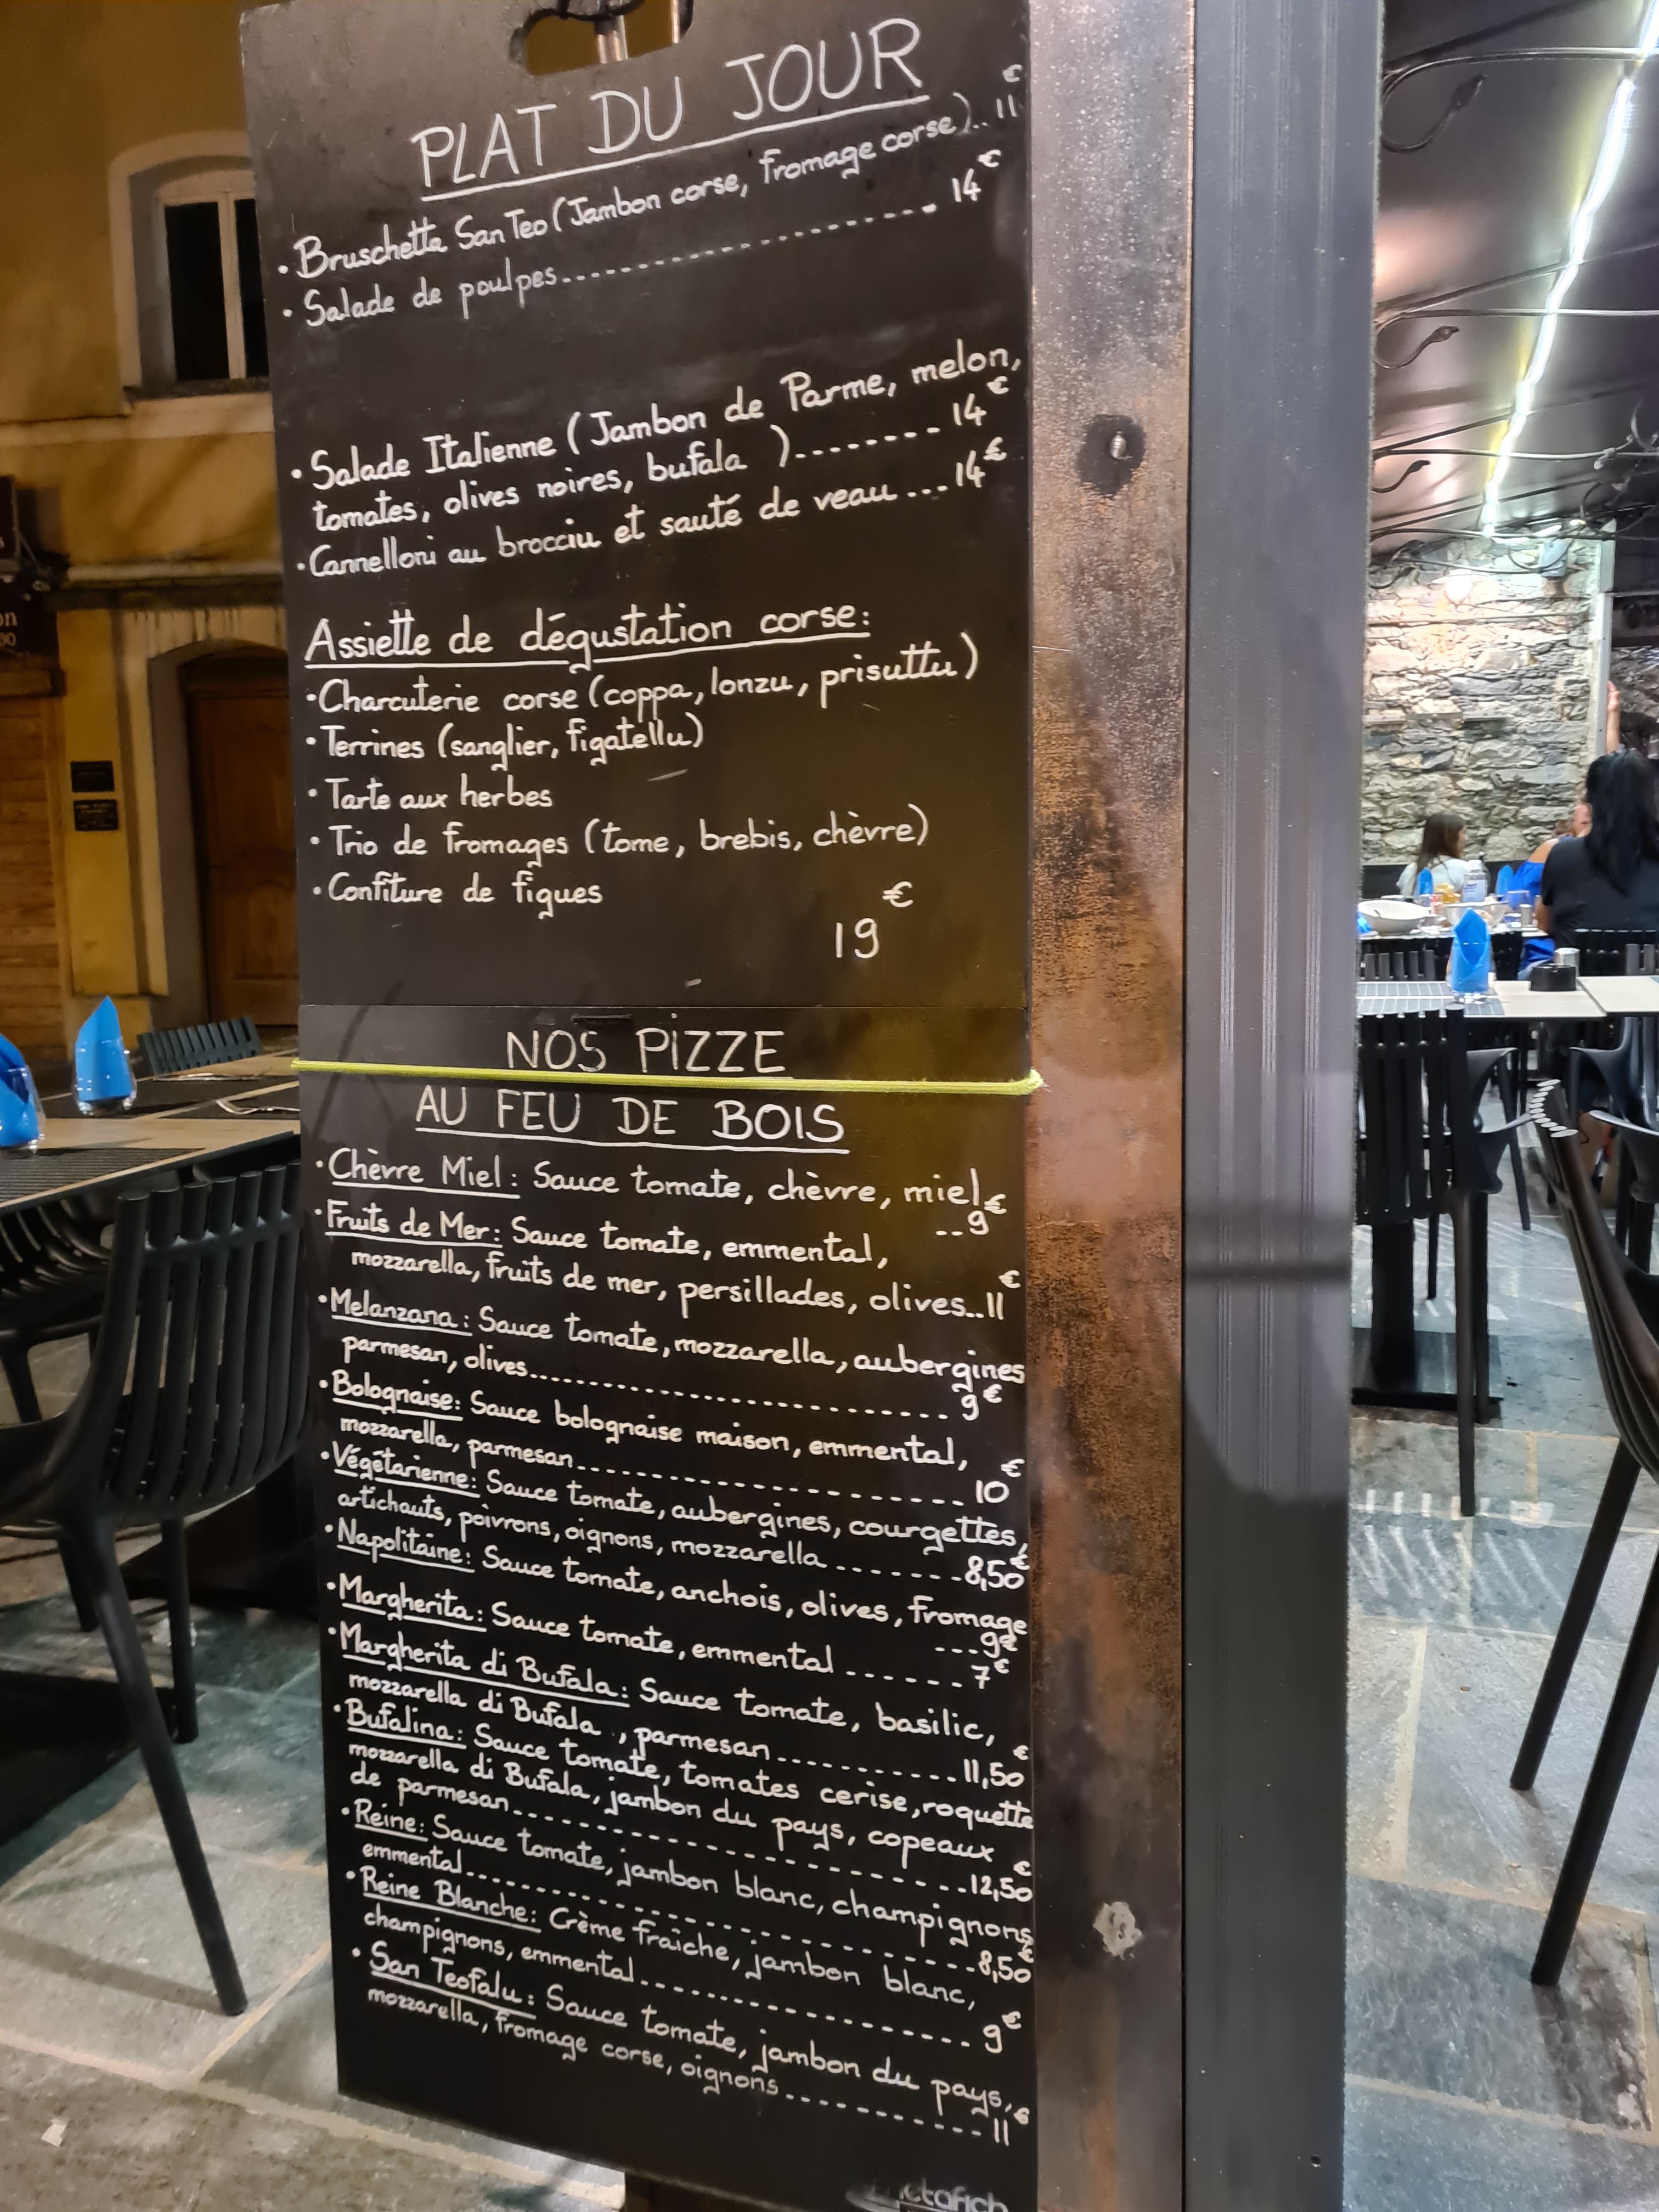 PLAT DU JOUR
• Bruschetta San Teo (Jambon corse, fromage corse).. 11€
• Salade de poulpes.................... 14€
• Salade Italienne (Jambon de Parme, melon,
tomates, olives noires, bufala )........ 14€
• Cannelloni au brocciu et sauté de veau ... 14€
Assiette de dégustation corse:
• Charcuterie corse (coppa, lonzu, prisuttu)
• Terrines (sanglier, figatellu)
• Tarte aux herbes
• Trio de fromages (tome, brebis, chèvre)
• Confiture de figues
19€
NOS PIZZE
AU FEU DE BOIS
• Chèvre Miel: Sauce tomate, chèvre, miel
..9€
• Fruits de Mer: Sauce tomate, emmental,
mozzarella, fruits de mer, persillades, olives..11€
• Melanzana: Sauce tomate, mozzarella, aubergines
parmesan, olives.......................... 9€
• Bolognaise: Sauce bolognaise maison, emmental,
mozzarella, parmesan...................... 10€
• Végétarienne: Sauce tomate, aubergines, courgettes,
artichauts, poivrons, oignons, mozzarella .......8,50€
• Napolitaine: Sauce tomate, anchois, olives, fromage
...9€
• Margherita: Sauce tomate, emmental ...... 7€
• Margherita di Bufala: Sauce tomate, basilic,
mozzarella di Bufala , parmesan............11,50€
• Bufalina: Sauce tomate, tomates cerise, roquette
mozzarella di Bufala, jambon du pays, copeaux
de parmesan..........................12,50€
• Reine: Sauce tomate, jambon blanc, champignons
emmental............................8,50€
• Reine Blanche: Crème fraîche, jambon blanc,
champignons, emmental................... 9€
• San Teofalu: Sauce tomate, jambon du pays,
mozzarella, fromage corse, oignons...........11€